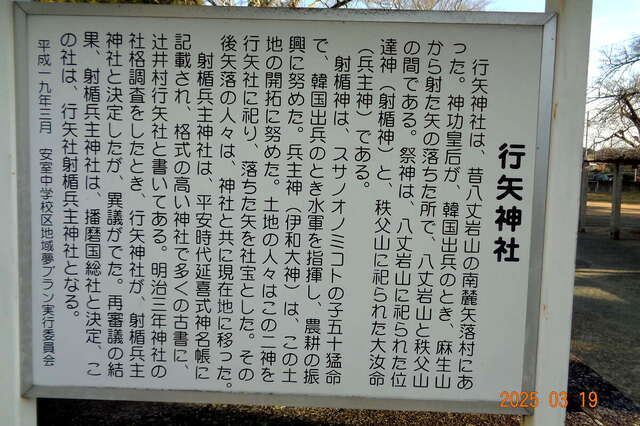 行矢神社
行矢神社は、昔八丈岩山の南麓矢落村にあ
った。神功皇后が、韓国出兵のとき、麻生山
から射た矢の落ちた所で、八丈岩山と秩父山
の間である。祭神は、八丈岩山に祀られた位
達神（射楯神）と、秩父山に祀られた大汝命
（兵主神）である。
射楯神は、スサノオノミコトの子五十猛命
で、韓国出兵のとき水軍を指揮し、農耕の振
興に努めた。兵主神（伊和大神）は、この土
地の開拓に努めた。土地の人々はこの二神を
行矢社に祀り、落ちた矢を社宝とした。その
後矢落の人々は、神社と共に現在地に移った。
射楯兵主神社は、平安時代延喜式神名帳に
記載され、格式の高い神社で多くの古書に、
辻井村行矢社と書いてある。明治三年神社の
社格調査をしたとき、行矢神社が、射楯兵主
神社と決定したが、異議がでた。再審議の結
果、射楯兵主神社は、播磨国総社と決定、こ
の社は、行矢社射楯兵主神社となる。
平成一九年三月　安室中学校区地域夢プラン実行委員会
2025 03 19